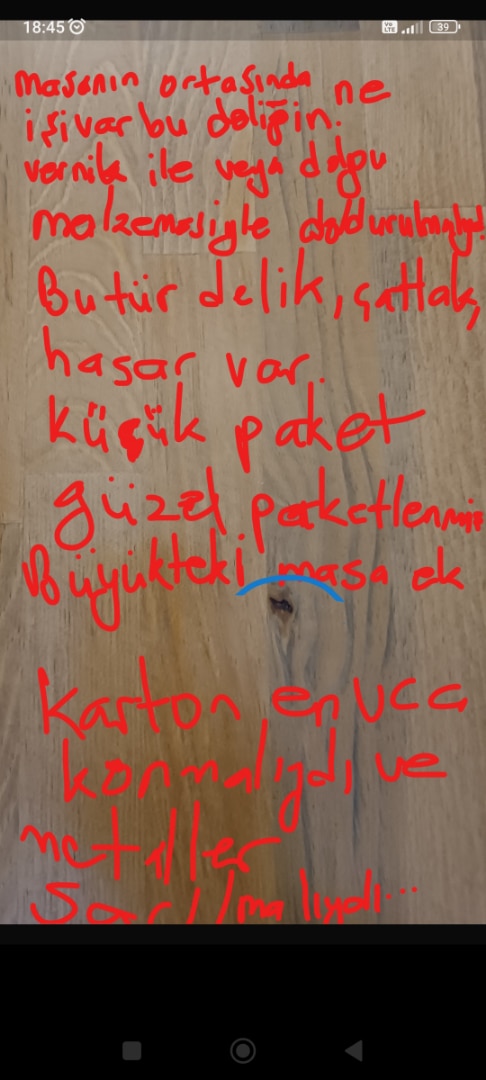 18:45
Vo LTE
39
masanın ortasında ne
işi var bu deliğin.
vernik ile veya dolgu
malzemesiyle doldurulmalıydı!
Bu tür delik, çatlak,
hasar var.
küçük paket
güzel paketlenmiş
Büyükteki masa ek
karton en uca
konmalıydı ve
metaller
Sarılmalıydı...